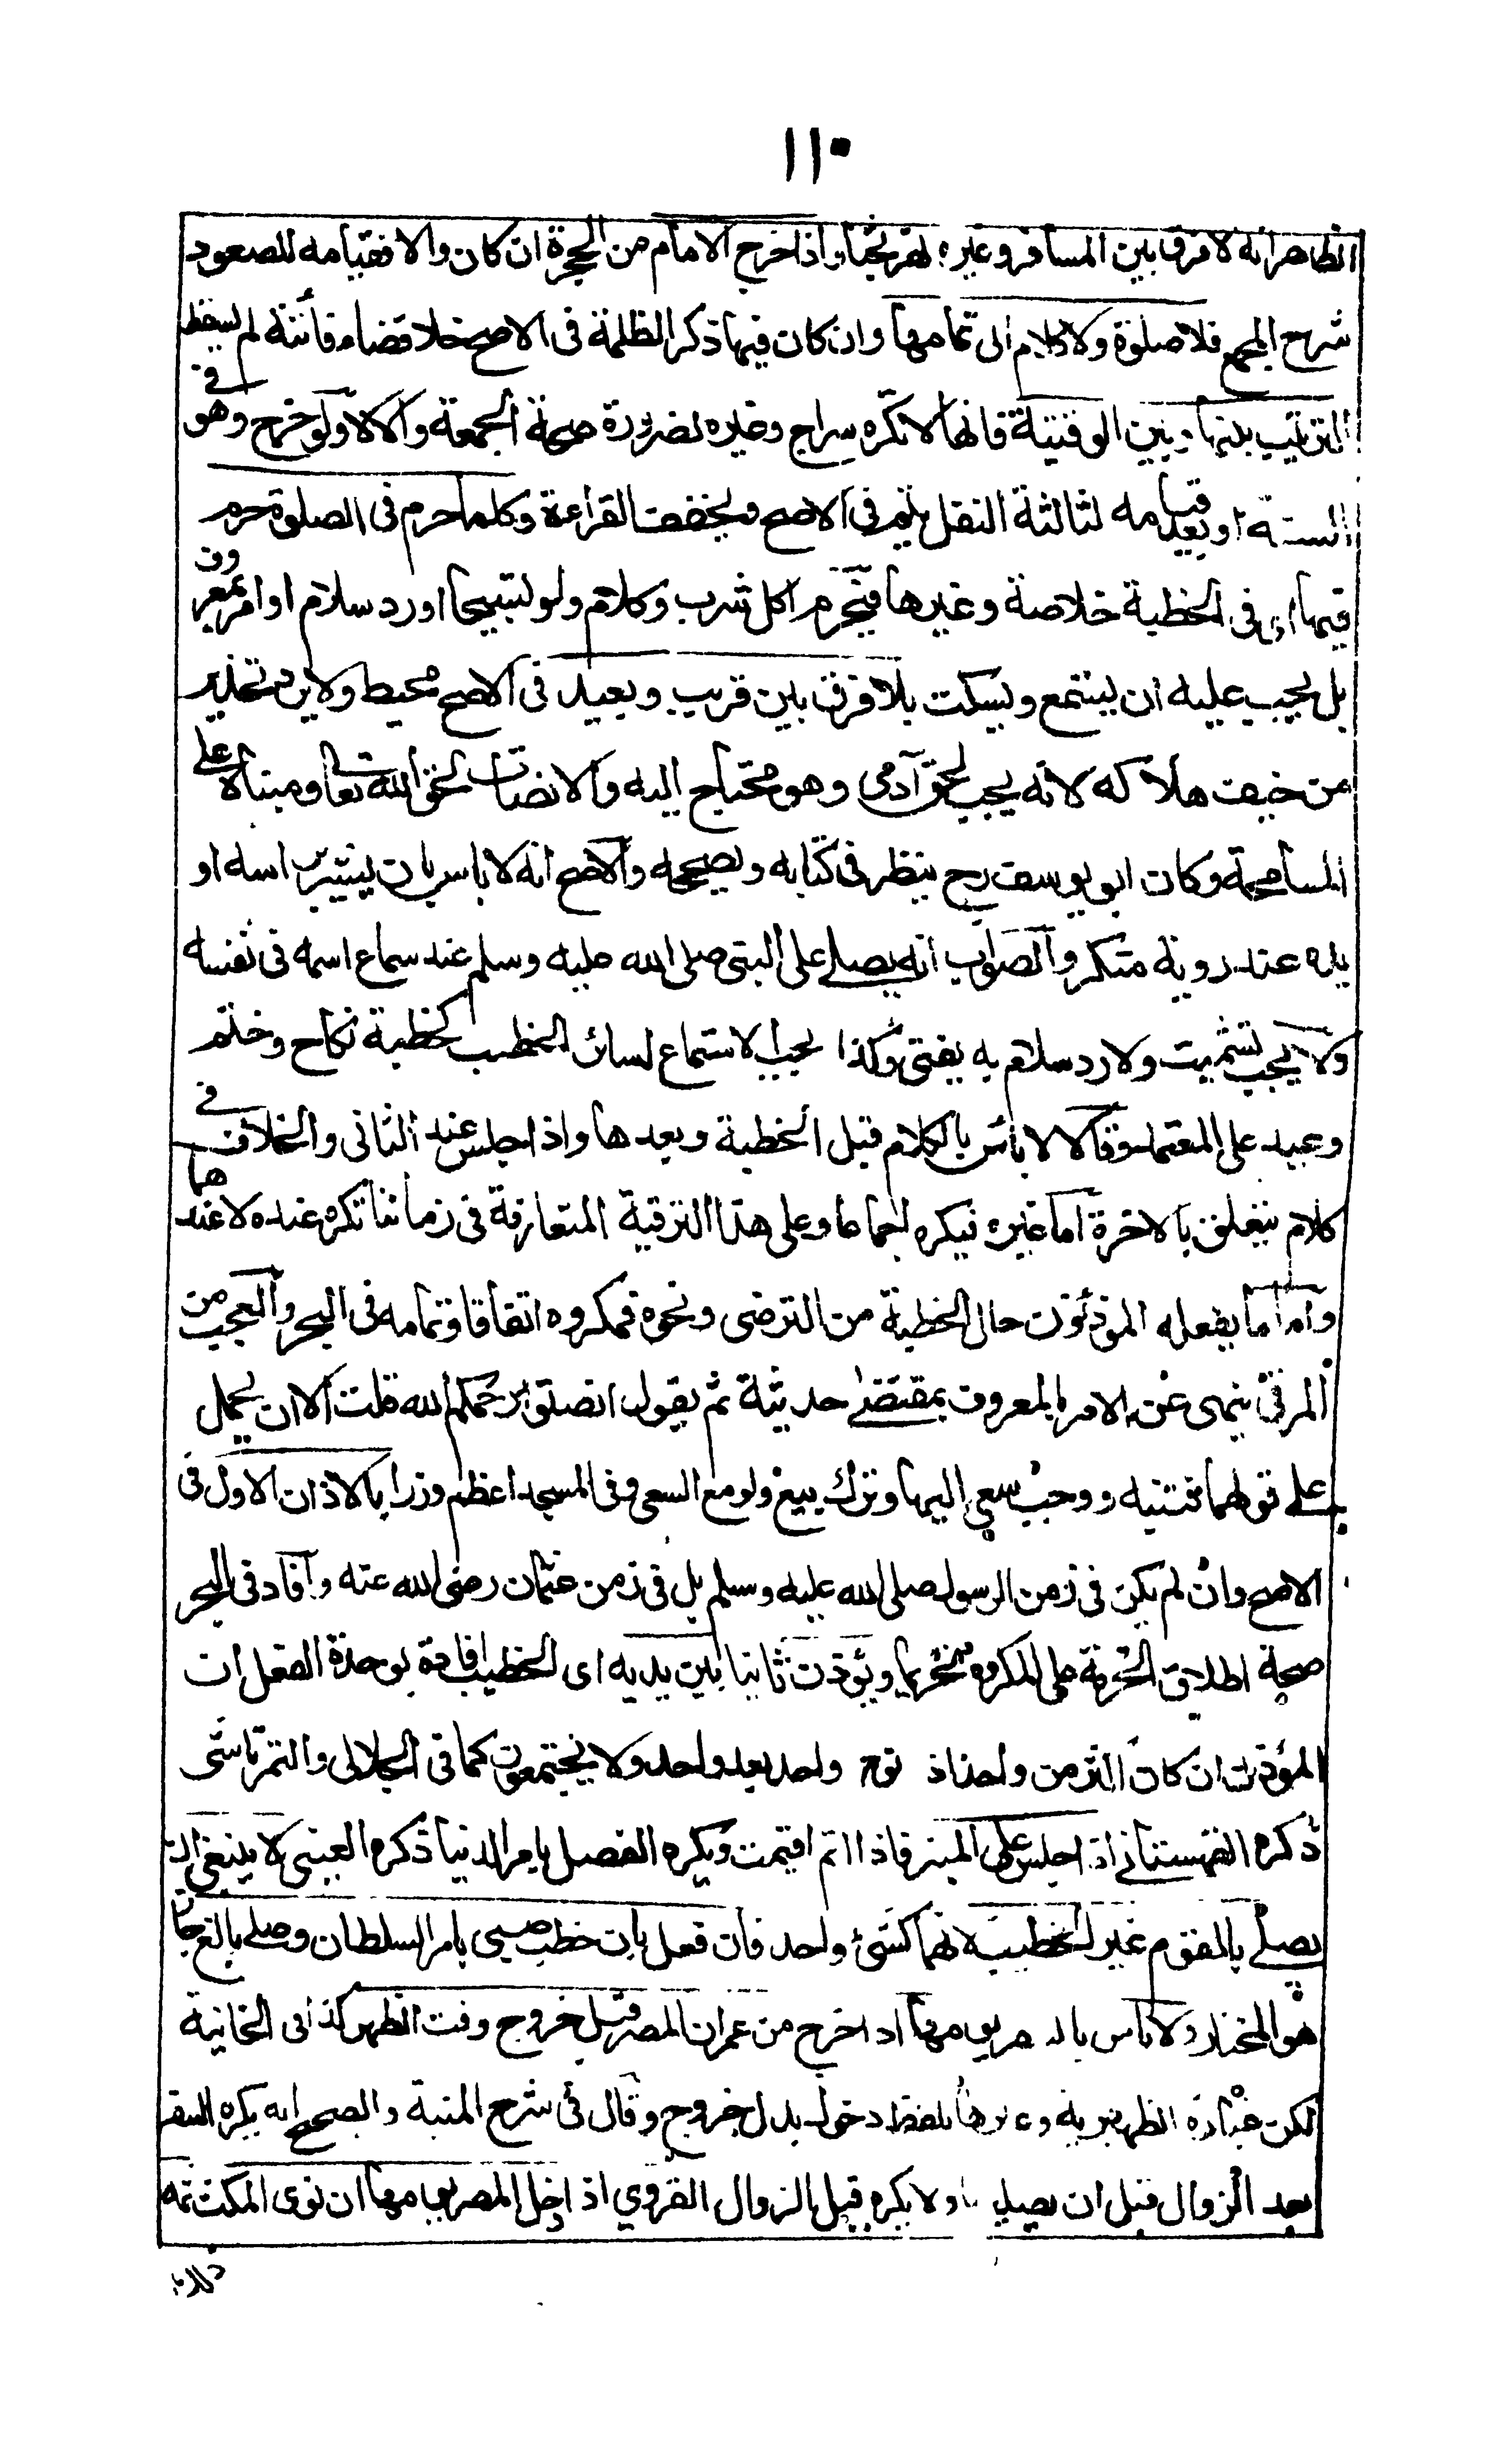 ١١٠
الظاهر انه لا فرق بين المسافر وغيره نهر بحثا واذا خرج الامام من الحجرة ان كان والا فقيامه للصعود
شرح المجمع فلا صلوة ولا كلام الى تمامها وان كان فيها ذكر الظلمة فى الاصح خلا قضاء فائتة لم يسقط
الترتيب بينها وبين الوقتية فانها لا تكره سراج وغيره لضرورة صحة الجمعة والا لا ولو خرج وهو فى
السنة او بعد قيامه لثالثة النفل يتم فى الاصح ويخفف القراءة وكلما حرم فى الصلوة حرم
فيها اى فى الخطبة خلاصة وغيرها فيحرم اكل شرب وكلام ولو تسبيحا اورد سلام او امر بمعروف
بل يجب عليه ان يستمع ويسكت بلا فرق بين قريب وبعيد فى الاصح محيط ولا يرد تحذير
من خيف هلاكه لانه يجب لحق آدمى وهو محتاج اليه والانصات لحق الله تعالى ومبناه على
المسامحة وكان ابو يوسف رح ينظر فى كتابه ويصححه والاصح انه لا باس بان يشير براسه او
يده عند روية منكر والصواب انه يصلے على النبى صلى الله عليه وسلم عند سماع اسمه فى نفسه
ولا يجب تشميت ولا رد سلام به يفتى وكذا يجب الاستماع لسائر الخطب كخطبة نكاح وختم
وعيد على المعتمد وقالا لا باس بالكلام قبل الخطبة وبعدها واذا جلس عند الثانى والخلاف فى
كلام يتعلق بالاخرة اما غيره فيكره اجماعا وعلى هذا الترقية المتعارفة فى زماننا تكره عنده لا عندهما
واما ما يفعله المؤذنون حال الخطبة من الترضى ونحوه فمكروه اتفاقا وتمامه فى البحر والعجب من
المرقى ينهى عن الامر بالمعروف بمقتضى حديثه ثم يقول انصتوا رحمكم الله قلت الا ان يحمل
على قولهما فتنبه ووجب سعى اليها وترك بيع ولو مع السعى وفى المسجد اعظم وزرا بالاذان الاول فى
الاصح وان لم يكن فى زمن الرسول صلى الله عليه وسلم بل فى زمن عثمان رضى الله عنه وافاد فى البحر
صحة اطلاق الحرمة على المكروه تحريما ويؤذن ثانيا بين يديه اى الخطيب افادة بوحدة الفعل ان
المؤذن ان كان اكثر من واحد اذ نوا واحد بعد واحد ولا يجتمعون كما فى الجلالى والتمرتاشى
ذكره القهستانى اذا جلس على المنبر فاذا اتم اقيمت ويكره الفصل بامر الدنيا ذكره العينى لا ينبغى ان
يصلے بالقوم غير الخطيب لانهما كشئ واحد فان فعل بان خطب صبى بامر السلطان وصلے بالغ جاز
هو المختار ولا باس بال يومها اذا خرج من عمران المصر قبل خروج وقت الظهر كذا فى الخانية
لكن عبارة الظهيرية وغيرها بلفظ دخول بدل خروج وقال فى شرح المنية والصحيح انه يكره السفر
بعد الزوال قبل ان يصليها ولا يكره قبل الزوال القروي اذا دخل المصر يومها ان نوى المكث ثمه